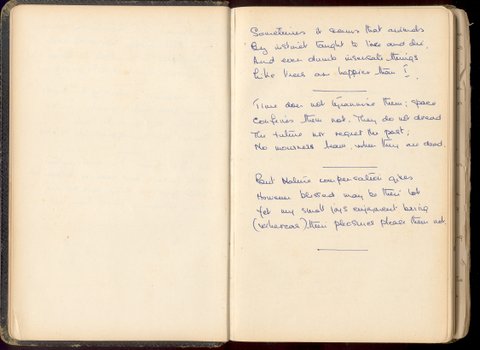 Sometimes it seems that animals
By instinct taught to live and die,
And even dumb insensate things
Like trees are happier than I.
Time does not tyrannise them; space
Confines them not. They do not dread
The future nor regret the past;
No mourners leave, when they are dead.
But Nature compensation gives
However blessed may be their lot
Yet my small joys enjoyment bring
(whereas) their pleasures please them not.